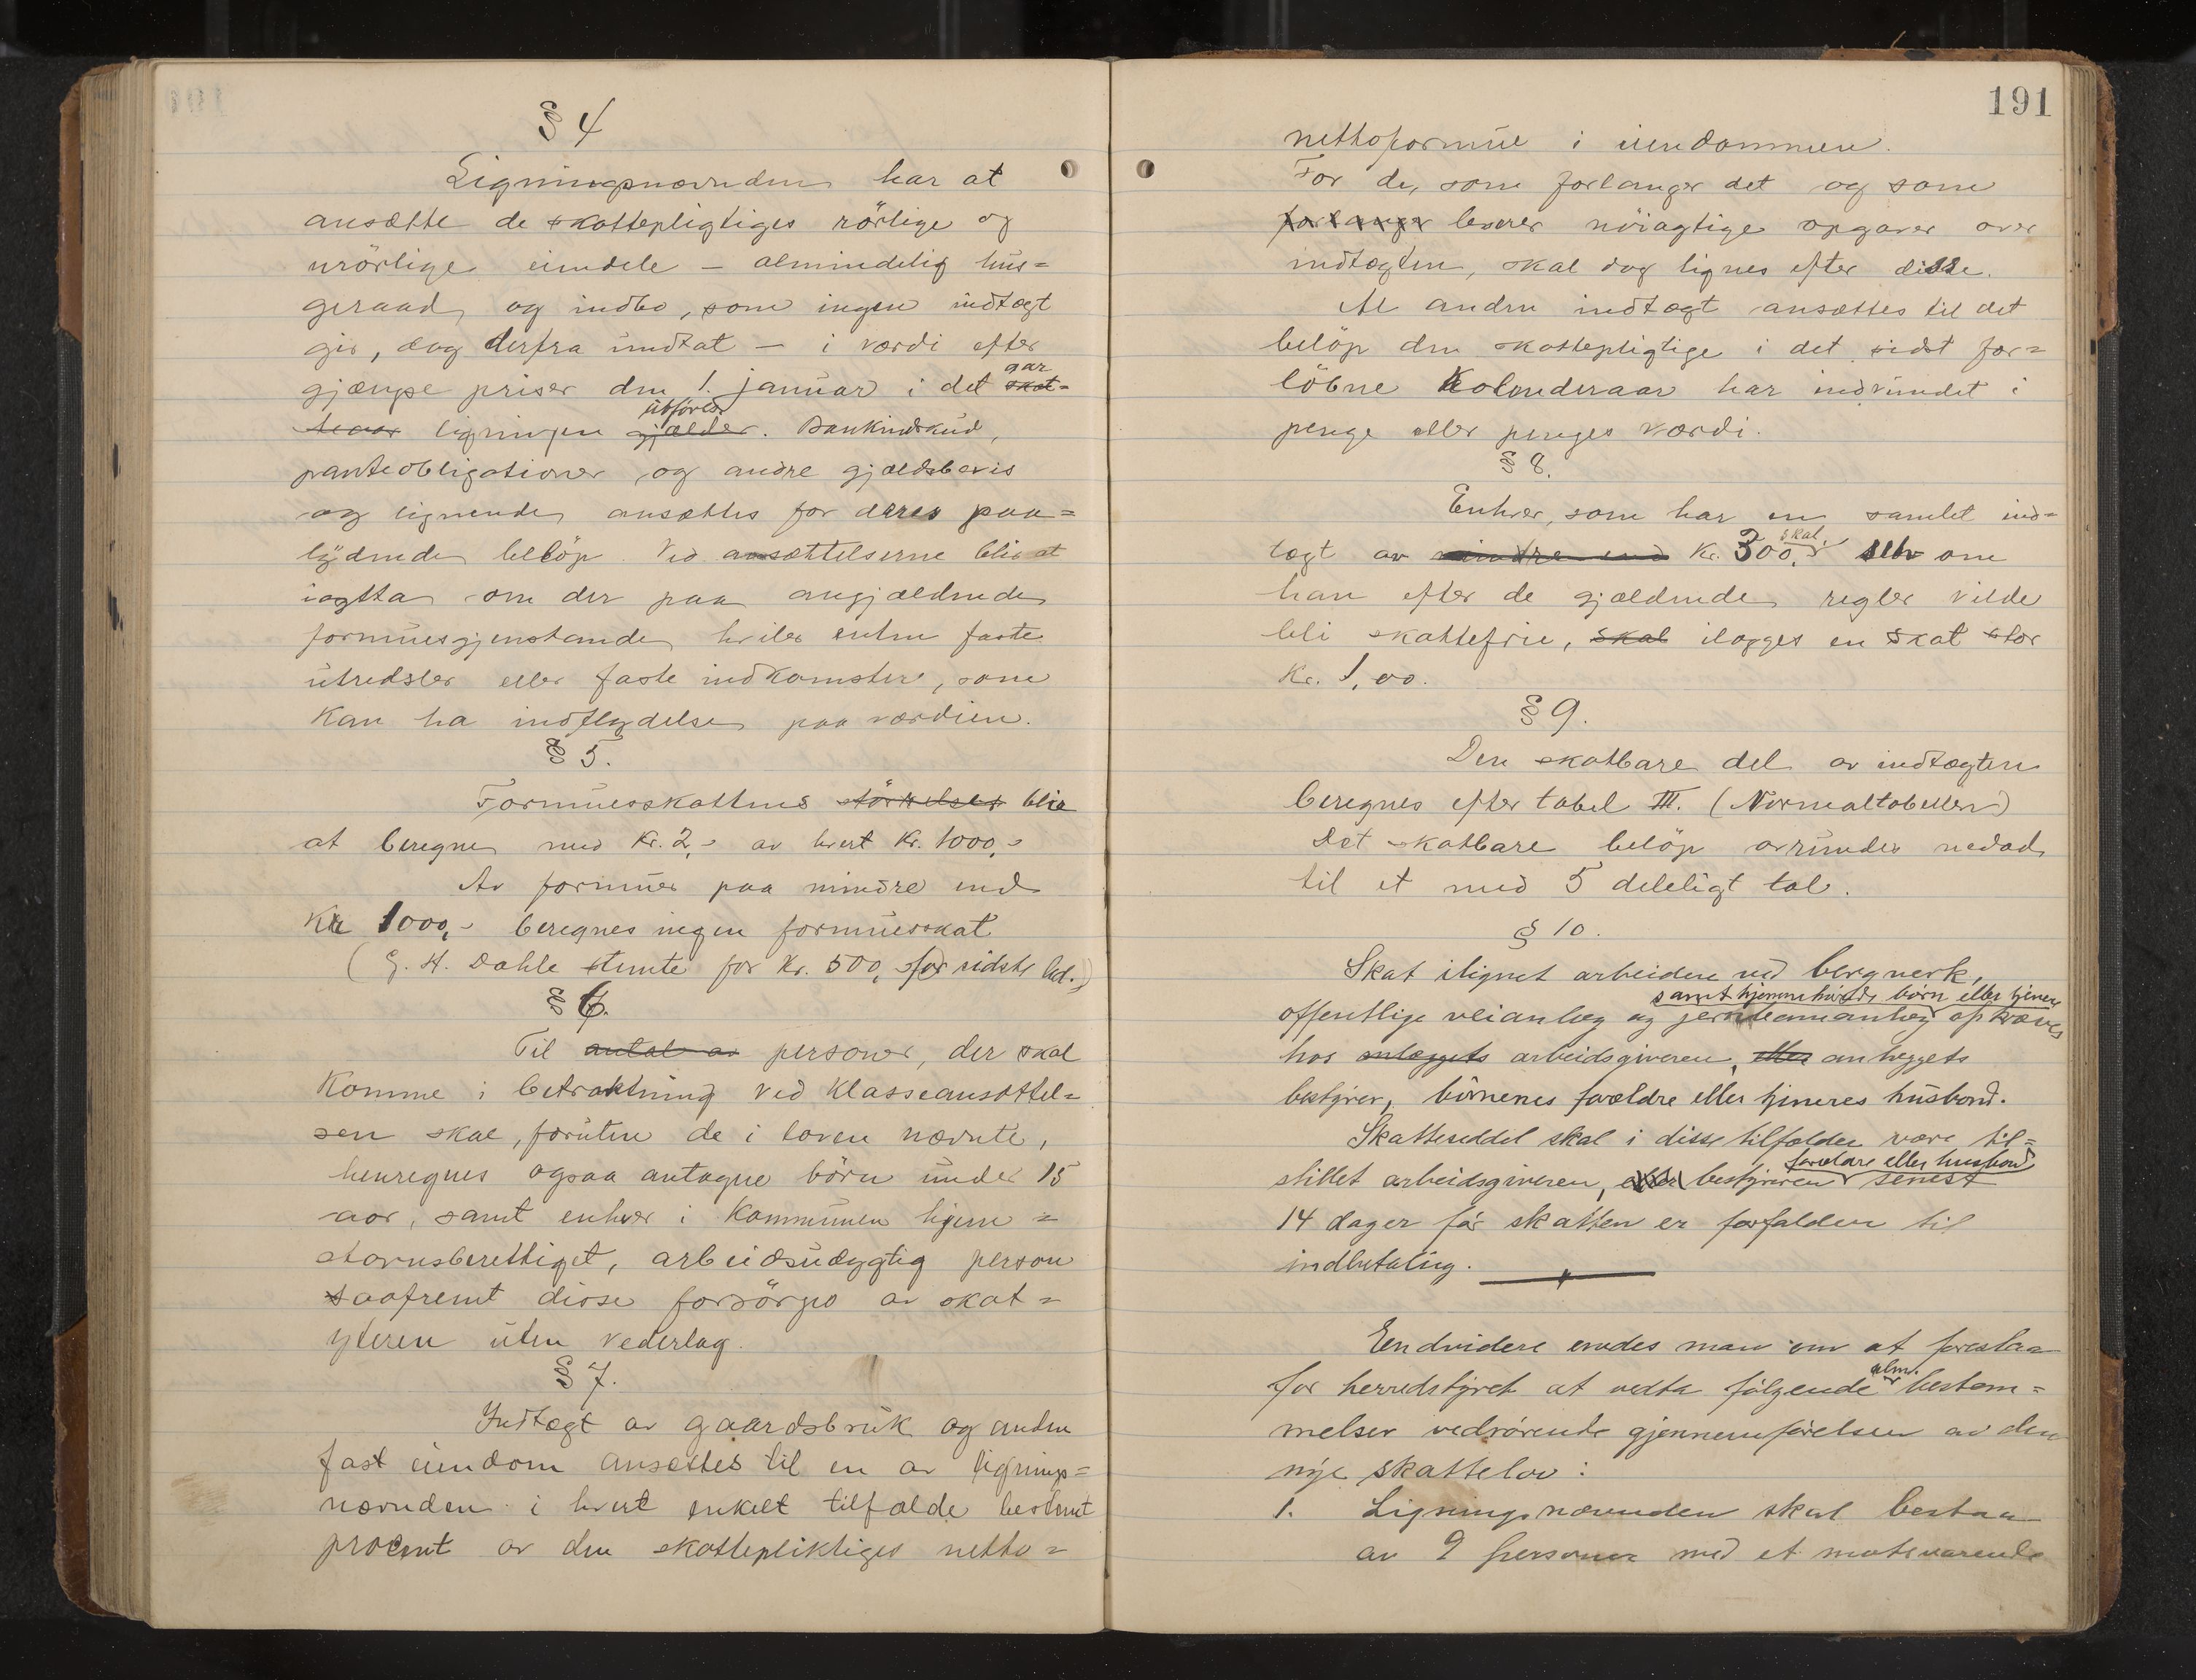 § 4
Ligningsnævnden har at
ansætte de skattepligtiges rörlige og
urörlige eiendele – almindelig hus=
geraad og indbo, som ingen indtægt
gir, dog derfra undtat – i værdi efter
gjængse priser den 1. januar i det aar skat=
teaar ligningen utföres gjælder. Bankindskud,
panteobligationer og andre gjældsbevis
og lignende ansættes for deres paa=
lydende belöp. Ved ansættelserne blir at
iagtta om der paa angjældende
formuesgjenstande hviler enten faste
utredsler eller faste indkomster, som
kan ha indflydelse paa værdien.
§ 5.
Formuesskattens störkelse blir
at beregne med Kr. 2,- av hvert Kr. 1000,-
Av formuer paa mindre end
Kr 1000,- beregnes ingen formuesskat
(G. H. Dahle stemte for Kr. 500,- for sidste led.)
§ 6.
Til antal av personer, der skal
komme i betraktning ved klasseansættel=
sen skal, foruten de i loven nævnte,
henregnes ogsaa antagne börn under 15
aar, samt enhver i kommunen hjem=
stavnsberettiget, arbeidsudygtig person
saafremt disse forsörges av skat=
yteren uten vederlag.
§ 7.
Indtægt av gaardsbruk og anden
fast eiendom ansættes til en av lignings=
nævnden i hvert enkelt tilfælde bestemt
procent av den skattepliktiges netto=
191
nettoformue i eiendommen.
For de, som forlanger det og som
forlanger leverer nöiagtige opgaver over
indtægten, skal dog lignes efter disse.
Al anden indtægt ansættes til det
belöp den skattepligtige i det sidst for=
löbne Kalenderaar har indvundet i
penge eller penges værdi.
§ 8.
Enhver, som har en samlet ind=
tægt av mindre end Kr. 300,- skal, selv om
han efter de gjældende regler vilde
bli skattefrie, skal ilægges en skat stor
Kr. 1,00.
§ 9.
Den skatbare del av indtægten
beregnes efter tabel III. (Normaltabellen)
Det skatbare belöp avrundes nedad
til et med 5 deleligt tal.
§ 10.
Skat ilignet arbeidere ved bergverk,
samt hjemmehörende börn eller tjenere
offentlige veianlæg og jernbaneanlæg opkræves
hos anlæggets arbeidsgiveren, eller anlæggets
bestyrer, börnenes forældre eller tjeneres husbond.
Skatteseddel skal i disse tilfælder være til=
forældre eller husbond
stillet arbeidsgiveren, eller bestyreren senest
14 dager för skatten er forfalden til
indbetaling.
Endvidere enedes man om at foreslaa
for herredstyret at vedta fölgende alm. bestem=
melser vedrörende gjennemförelsen av den
nye skattelov:
1. Ligningsnævnden skal bestaa
av 9 personer med et motsvarende